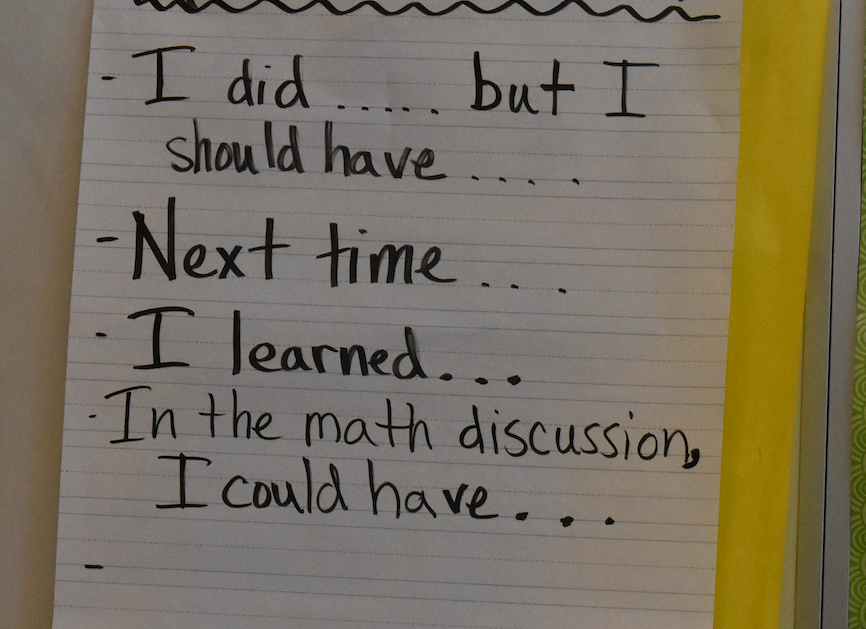 - I did ..... but I
should have ....
- Next time ....
- I learned...
- In the math discussion,
I could have...
-